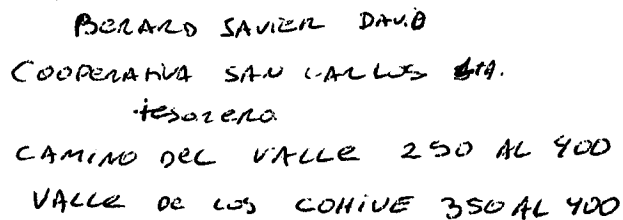 BERARD SAVIER DAVID
COOPERATIVA SAN CARLOS STA.
tesorero
CAMINO DEL VALLE 250 AL 400
VALLE DE LOS COHIUE 350 AL 400